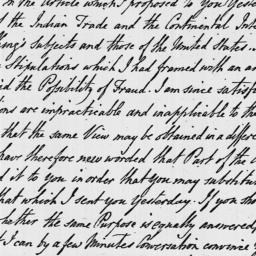 in the Article which I proposed to You Yester
of the Indian Trade and the Continental Inte
King's Subjects and those of the United States.
Stipulations which I had framed with an a
id the Possibility of Fraud. I am since satisf
ions are impracticable and inapplicable to th
that the same View may be obtained in a differe
have therefore new worded that Part of the
d it to You in order that you may substitu
that which I sent you Yesterday. If you sho
hether the same Purpose is equally answered,
I can by a few Minutes Conversation convince